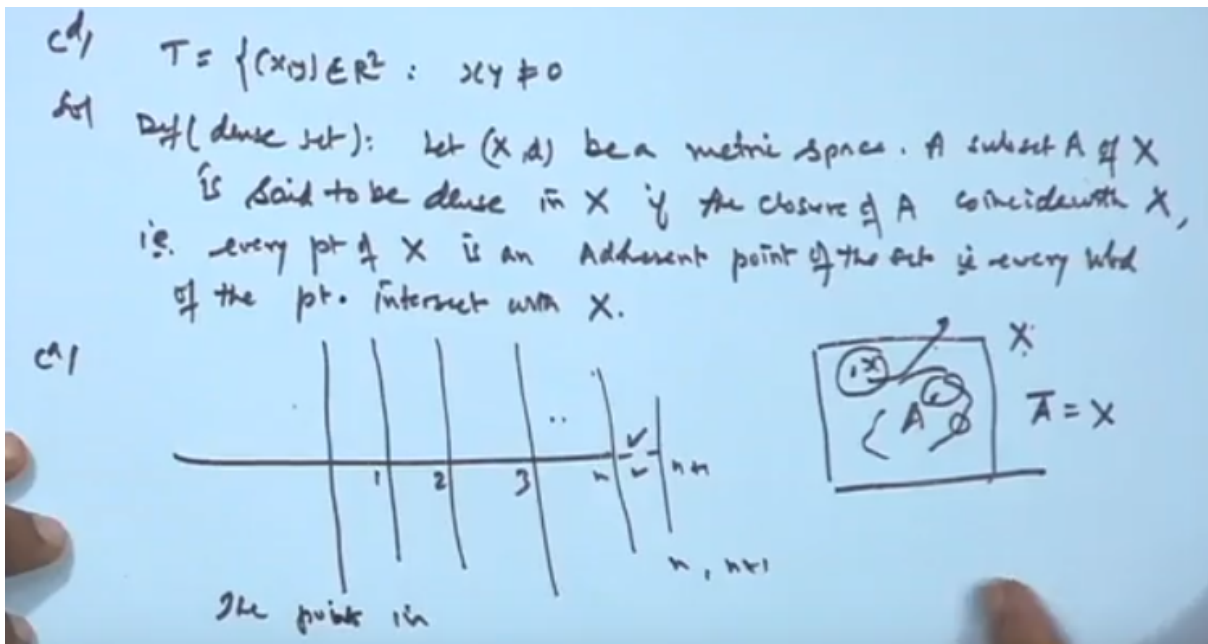 (d) T = {(x,y) ∈ R² : xy ≠ 0
Sol Def (dense set): Let (X,d) be a metric space. A subset A of X
is said to be dense in X if the closure of A coincide with X,
i.e. every pt of X is an Adherent point of the set ie every nbd
of the pt. intersect with X.
(a)
1 2 3 .. n n+1
n, n+1
The points in
X
.x
A
Ā = X